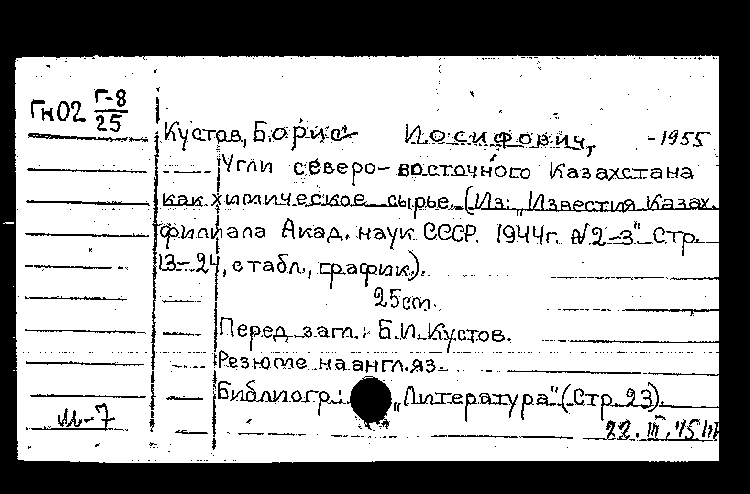 Гн02 Г-8
25
Кустов, Борис Иосифович, -1955
Угли северо-восточного Казахстана
как химическое сырье. (Из: „Известия Казах.
филиала Акад. наук СССР. 1944г. №2-3" Стр.
13-24, с табл., график.).
25см.
Перед загл.: Б.И. Кустов.
Резюме на англ. яз.
Библиогр.: „Литература" (Стр. 23).
М-7
22.III.75